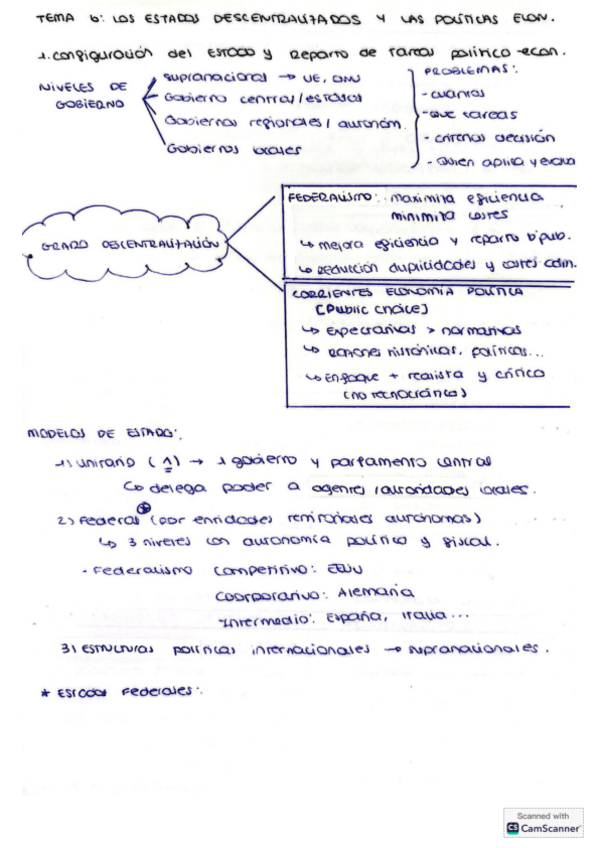 TEMA 6: LOS ESTADOS DESCENTRALIZADOS Y LAS POLÍTICAS ECON.
1. Configuración del ESTADO y Reparto de tareas político-econ.
NIVELES DE GOBIERNO
Supranacional → UE, ONU
Gobierno central/estatal
Gobiernos regionales/autonóm.
Gobiernos locales
PROBLEMAS:
- cuántos
- que tareas
- criterios decisión
- Quien aplica y evalúa
GRADO DESCENTRALIZACIÓN
FEDERALISMO: maximiza eficiencia
minimiza costes
↳ mejora eficiencia y reparto b.pub.
↳ REDUCCIÓN duplicidades y costes adm.
CORRIENTES ECONOMÍA POLÍTICA
[Public choice]
↳ Expectativas > normativas
↳ RAZONES históricas, políticas...
↳ Enfoque + realista y crítico
(no tecnocrático)
MODELOS DE ESTADO:
1) Unitario (1) → 1 gobierno y parlamento central
↳ delega poder a agentes/autoridades locales.
2) Federal (por entidades territoriales autónomas)
↳ 3 niveles con autonomía político y fiscal.
- Federalismo Competitivo: EEUU
Coorporativo: Alemania
Intermedio: España, Italia...
3) ESTRUCTURAS políticas internacionales → supranacionales.
* ESTADOS Federales:
Scanned with
CS CamScanner